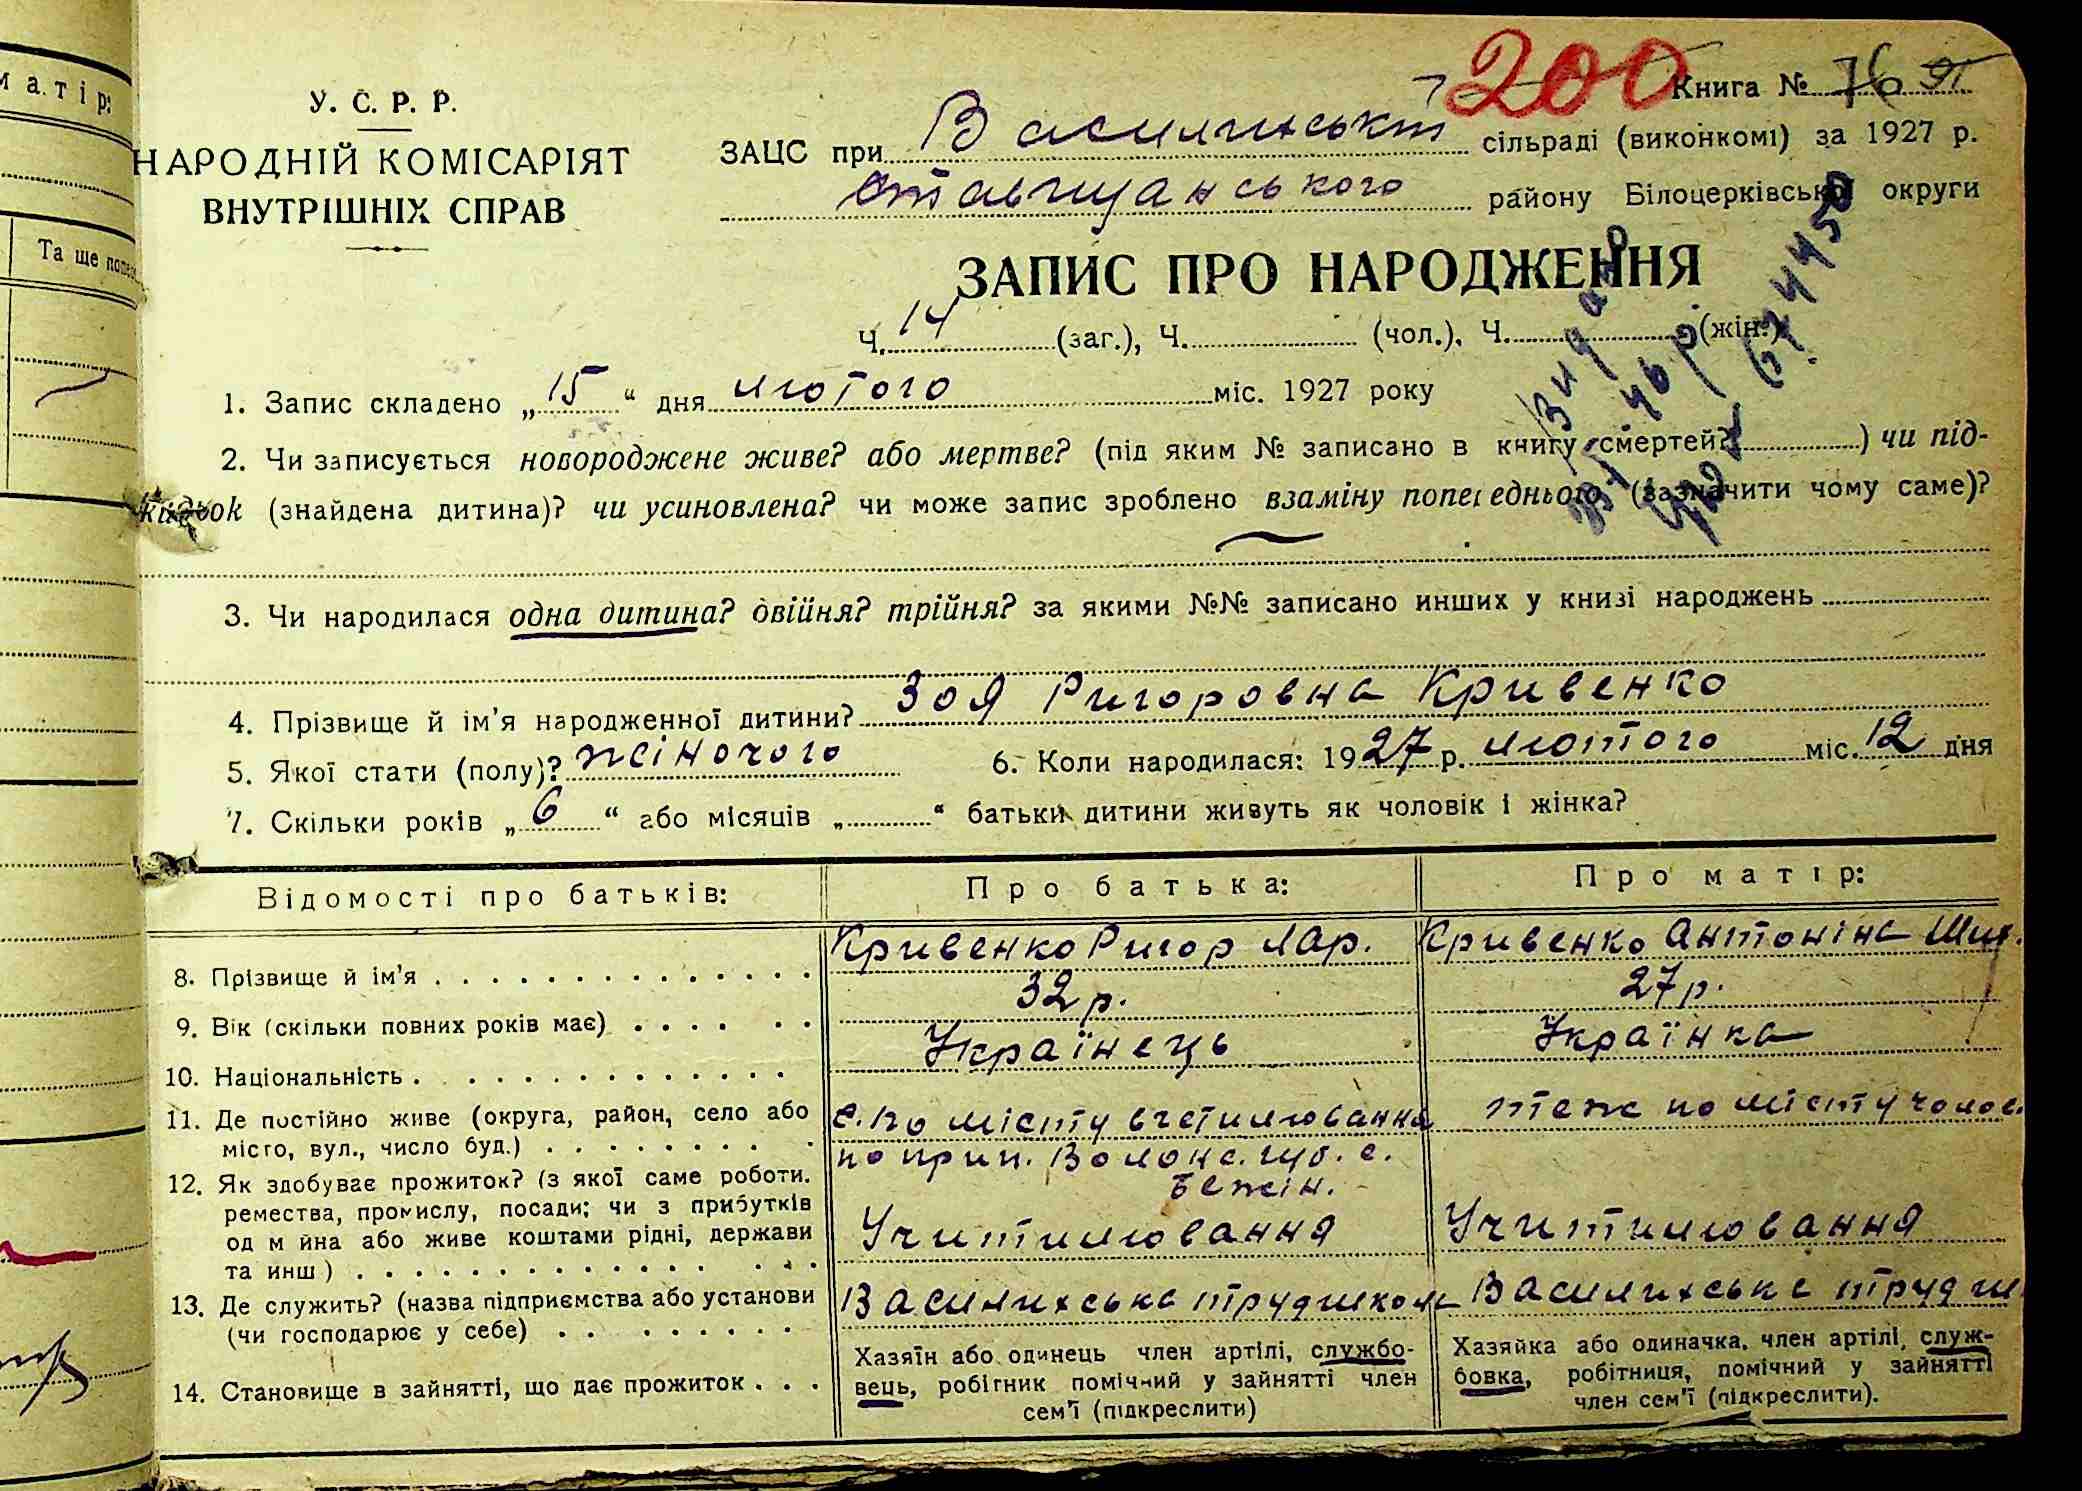 матір:
Та ще
У. С. Р. Р.
НАРОДНІЙ КОМІСАРІЯТ
ВНУТРІШНІХ СПРАВ
200
Книга № 76
ЗАЦС при Василиськ сільраді (виконкомі) за 1927 р.
Ставищанського району Білоцерківської округи
ЗАПИС ПРО НАРОДЖЕННЯ
Ч. 14 (заг.), Ч. (чол.), Ч. (жін.)
1. Запис складено „15“ дня лютого міс. 1927 року
2. Чи записується новороджене живе? або мертве? (під яким № записано в книгу смертей? ) чи під-
кидьок (знайдена дитина)? чи усиновлена? чи може запис зроблено взаміну попереднього (зазначити чому саме)?
3. Чи народилася одна дитина? двійня? трійня? за якими №№ записано инших у книзі народжень
4. Прізвище й ім'я народженної дитини? Зоя Ригоровна Кривенко
5. Якої стати (полу)? жіночого 6. Коли народилася: 1927 р. лютого міс. 12 дня
7. Скільки років „6“ або місяців „ “ батьки дитини живуть як чоловік і жінка?
Відомості про батьків: Про батька: Про матір:
8. Прізвище й ім'я Кривенко Ригор Лар. Кривенко Антоніна
9. Вік (скільки повних років має) 32 р. 27 р.
10. Національність Українець Українка
11. Де постійно живе (округа, район, село або с. по місту вчетилювання теж по місту чолов.
місто, вул., число буд.) по прип. Волонс. губ. с.
12. Як здобуває прожиток? (з якої саме роботи.
ремества, промислу, посади; чи з прибутків Учитилювання Учитилювання
од м йна або живе коштами рідні, держави
та инш)
13. Де служить? (назва підприємства або установи Василихська трудшкола Василихська трудш
(чи господарює у себе)
14. Становище в зайнятті, що дає прожиток
Хазяїн або одинець член артілі, службо-
вець, робітник помічний у зайнятті член
сем'ї (підкреслити)
Хазяйка або одиначка, член артілі, служ-
бовка, робітниця, помічний у зайнятті
член сем'ї (підкреслити).